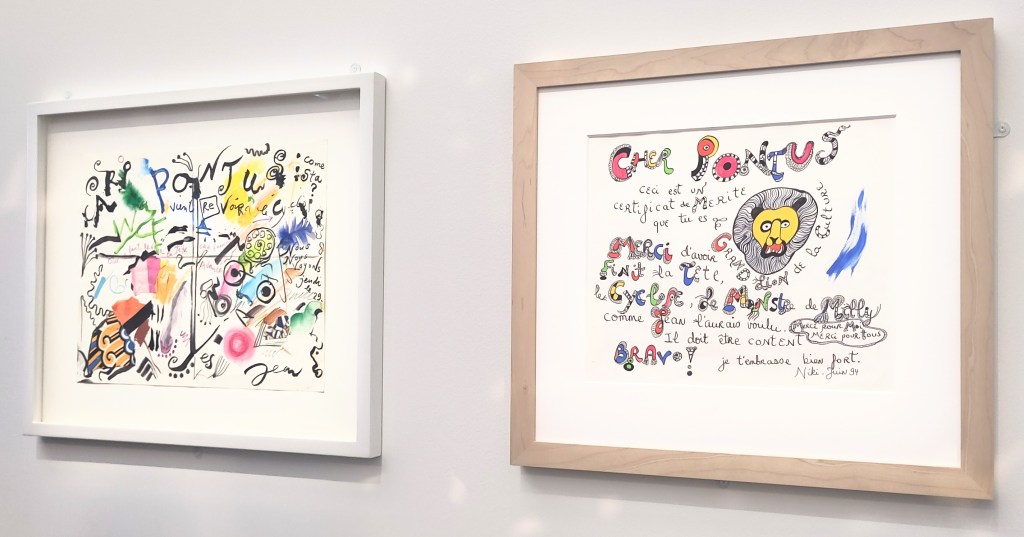 AH PONTUS
come
sta
?
Revoir
nous
nous
jeudi
le 29
Jean
CHER PONTUS
CECI EST UN
CERTIFICAT de MERITE
QUE TU ES
GRAND LION de la Culture
MERCI d'avoir
FINIT la TÊTE,
le CYCLOPE, de MONSTRE de Milly
comme Jean l'aurais voulu.
MERCI POUR MOI
MERCI POUR TOUS
Il doit être CONTENT
BRAVO! je t'embrasse bien fort.
Niki - Juin 94